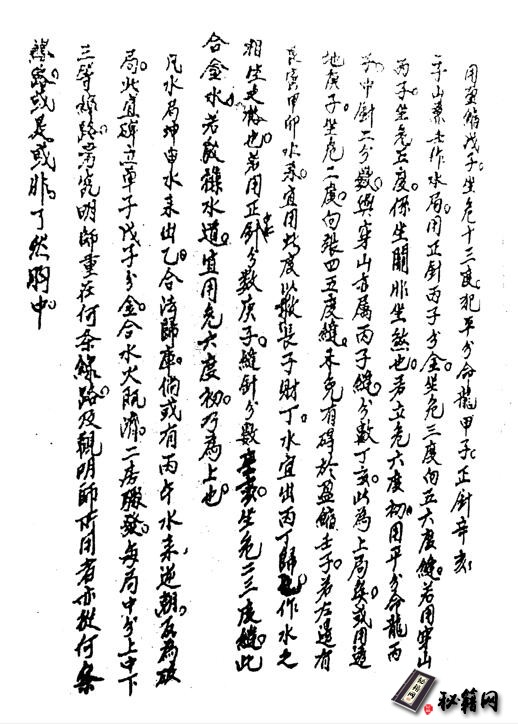 用盈縮戊子坐危十三度犯平分命龍甲子正針辛亥
子山兼壬作水局用正針丙子分金坐危三度向五六度縫若用穿山
丙子坐危五度係坐關非坐煞也若立危六度初用平分命龍丙
子中針二分數與穿山亦屬丙子縫分數丁亥此為上局矣或用透
地庚子坐危二度向張四五度縫未免有碍於盈縮壬子若左邊有
艮寅甲卯水来宜用此度以撥長子財丁水宜出丙丁歸作水之
相生走格也若用正針分數庚子縫針分數坐危二三度縫此
合金水若啟祿水道宜用危六度初乃為上也
凡水局坤申水来出乙合法歸庫倘或有丙午水来逆朝反為破
局此宜碑立單子戊子分金合水火既濟二房驟發每局中分上中下
三等線路考究明師重在何条線路及觀明師所用者亦從何条
線路或是或非了然胸中
秘籍网
秘籍网